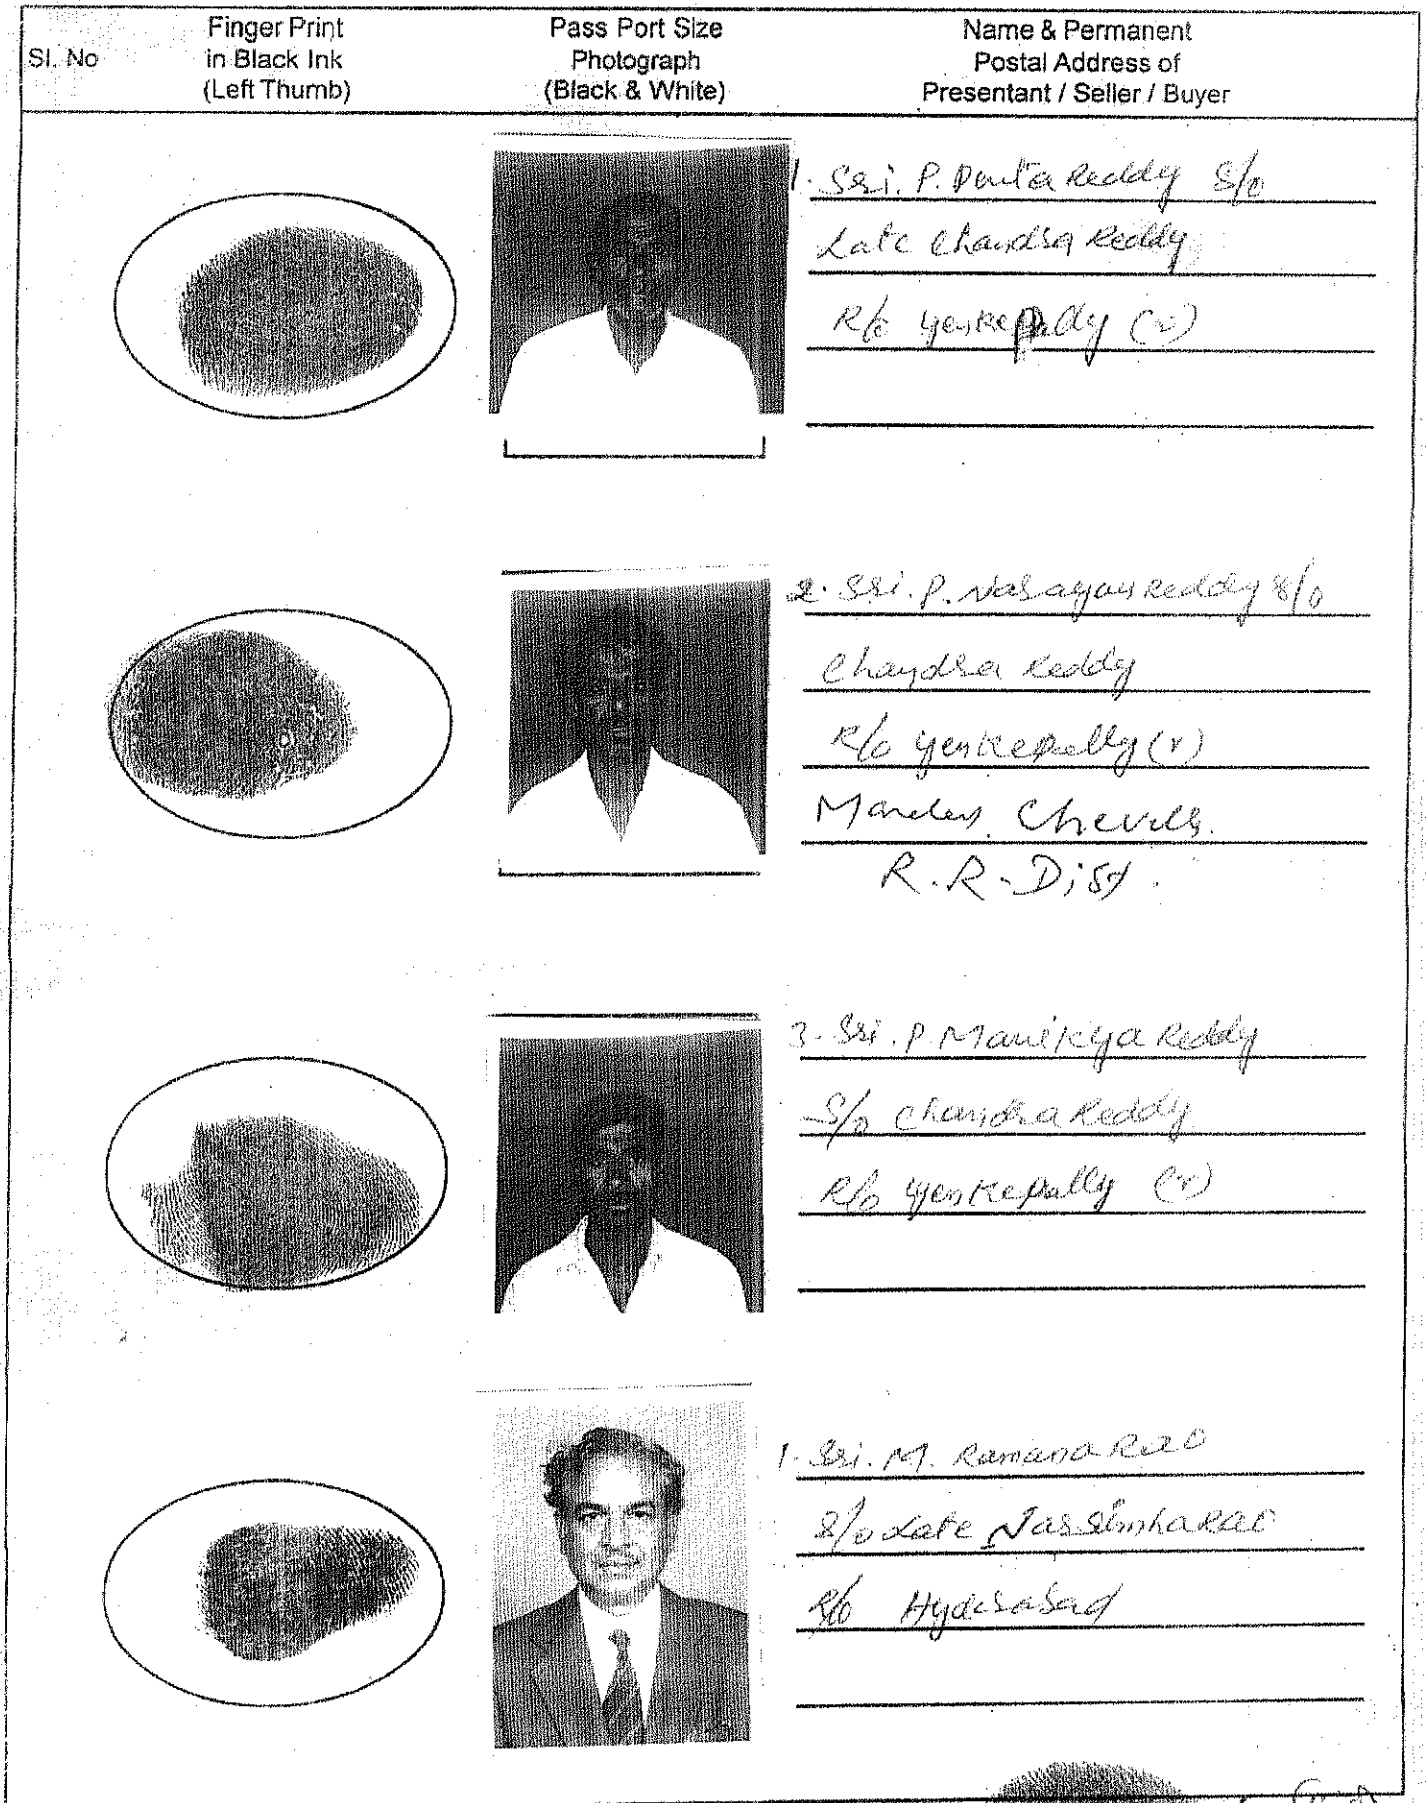 Sl. No
Finger Print
in Black Ink
(Left Thumb)
Pass Port Size
Photograph
(Black & White)
Name & Permanent
Postal Address of
Presentant / Seller / Buyer
1. Sri. P. Reddy S/o
Late Chandra Reddy
R/o Yenkepally (v)
2. Sri. P. Narayan Reddy S/o
Chandra Reddy
R/o Yenkepally (v)
Chevella
R.R. Dist.
3. Sri. P. Manikya Reddy
S/o Chandra Reddy
R/o Yenkepally (v)
1. Sri. M. Ramana Rao
S/o Late Narsimha Rao
R/o Hyderabad